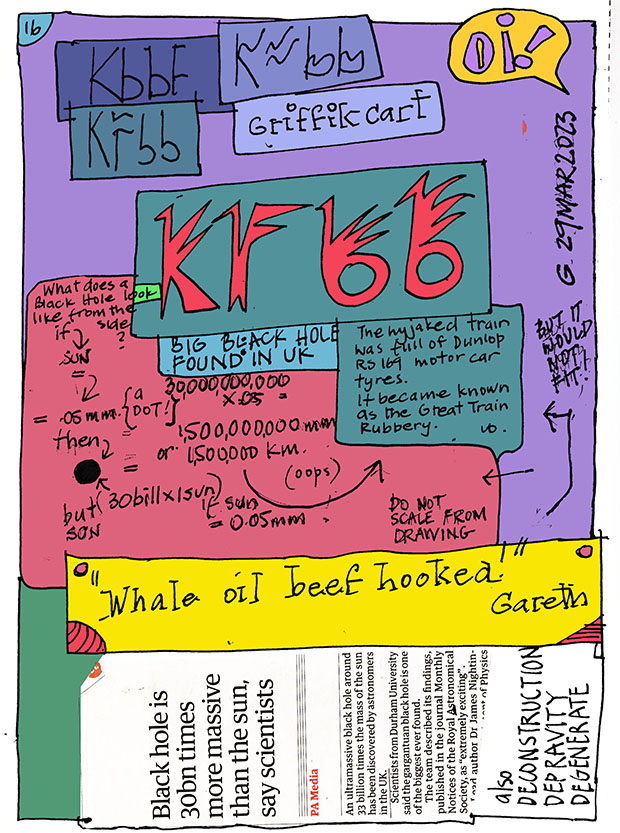 16
Kbbf
K bb
Oi!
Kr̃bb
Griffikcarf
KFbb
G 29 MAR 2023
What does a
Black Hole look
like from the
side
if
?
SUN
=
= .05 mm. {a DOT!}
then
=
but (30bill x 1 sun)
SUN
BIG BLACK HOLE
FOUND IN UK
30,000,000,000
x .05 =
1,500,000,000 mm
or 1,500,000 km.
(oops)
if sun
= 0.05mm
The hyjaked train
was full of Dunlop
RS 169 motor car
tyres.
It became known
as the Great Train
Rubbery.
BUT IT
WOULD
NOT
FIT!
DO NOT
SCALE FROM
DRAWING
"Whale oil beef hooked!"
Gareth
Black hole is
30bn times
more massive
than the sun,
say scientists
PA Media
An ultramassive black hole around
33 billion times the mass of the sun
has been discovered by astronomers
in the UK.
Scientists from Durham University
said the gargantuan black hole is one
of the biggest ever found.
The team described its findings,
published in the journal Monthly
Notices of the Royal Astronomical
Society, as "extremely exciting".
author Dr James Nightin-
of Physics
also
DECONSTRUCTION
DEPRAVITY
DEGENERATE